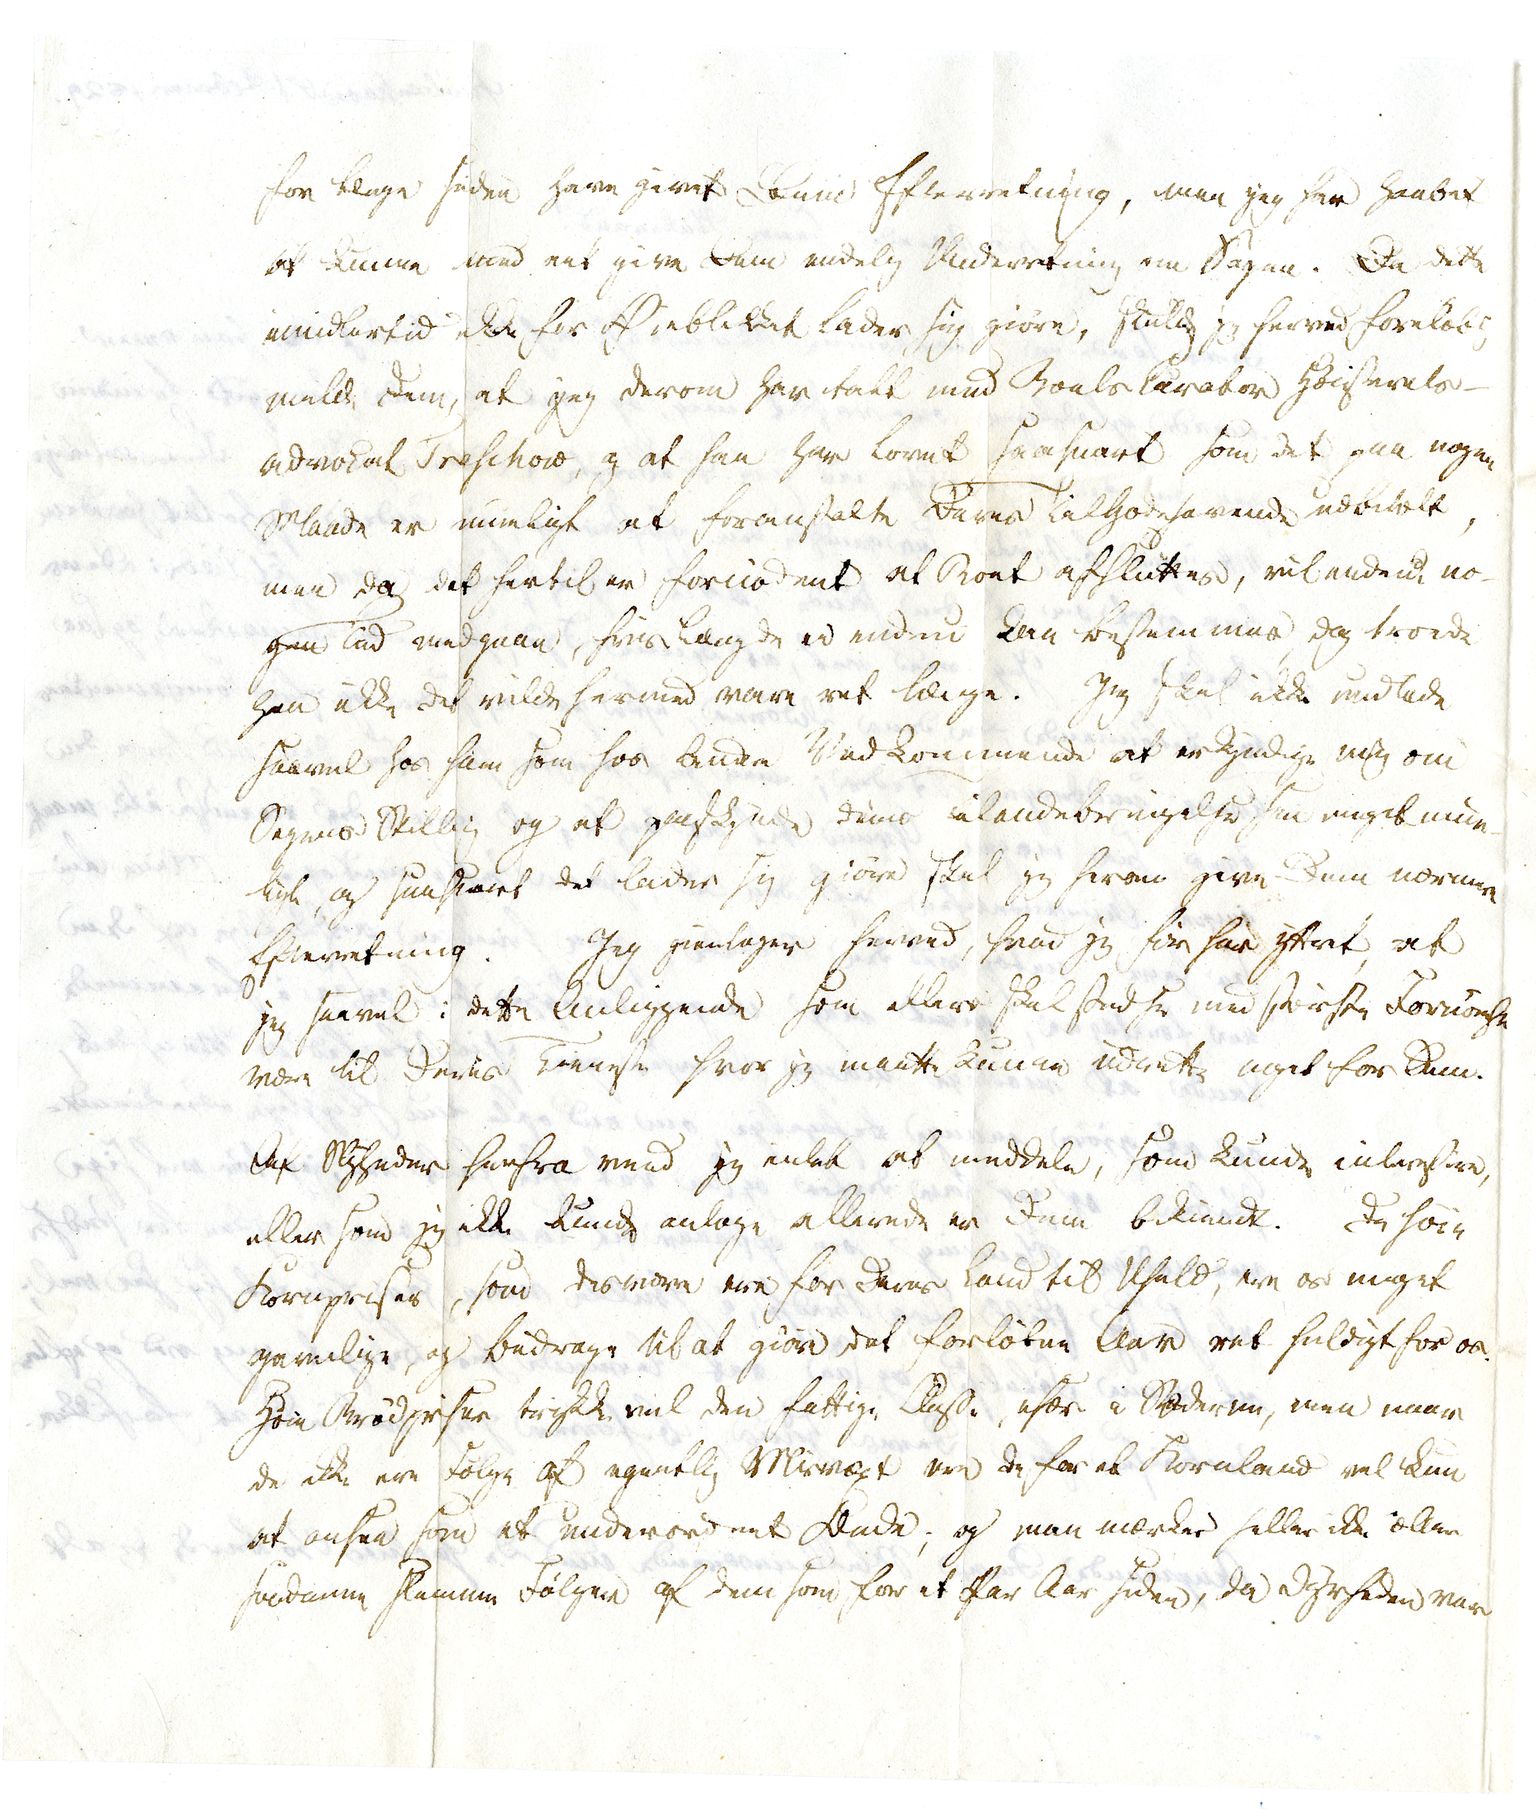 for længe siden have givet Dem Efterretning, men jeg har haabet
at kunne med eet give Dem endelig Underretning om Sagen. Da dette
imidlertid ikke for Øieblikket lader sig giøre, skulde jeg herved foreløbig
melde Dem, at jeg derom har talt med Boets Curator Høiesterets-
advokat Treschow, og at han har lovet saasnart som det paa nogen
Maade er mueligt at foranstalte Deres Tilgodehavende udbetalt,
men da det hertil er fornødent at Boet afsluttes, vil endnu no-
gen Tid medgaae, hvis Længde ei endnu kan bestemmes, dog troede
han ikke det vilde hermed vare ret længe. Jeg skal ikke undlade
saavel hos ham som hos andre Vedkommende at erkyndige mig om
Sagens Stilling og at paaskynde dens Tilendebringelse saa meget mue-
ligt, og saasnart det lader sig giøre skal jeg herom give Dem nærmere
Efterretning. Jeg gientager herved, hvad jeg før har yttret, at
jeg saavel i dette Anliggende som ellers skal stedse med største Fornøielse
være til Deres Tieneste hvor jeg maatte kunne udrette noget for Dem.
Af Nyheder herfra veed jeg intet at meddele, som kunde interessere,
eller som jeg ikke kunde antage allerede er Dem bekiendt. De høie
Kornpriser, som desværre ere for Deres Land til Uheld, ere os meget
gavnlige, og bidrage til at giøre det forløbne Aar ret heldigt for os.
Høie Brødpriser trykke vel den fattige Classe, især i Stæderne, men naar
de ikke ere Følge af egentlig Misvæxt ere de for et Kornland vel kun
at ansee som et underordnet Onde; og man mærker heller ikke i Aar
saadanne slemme Følger af dem som for et Par Aar siden, da Dyrheden var